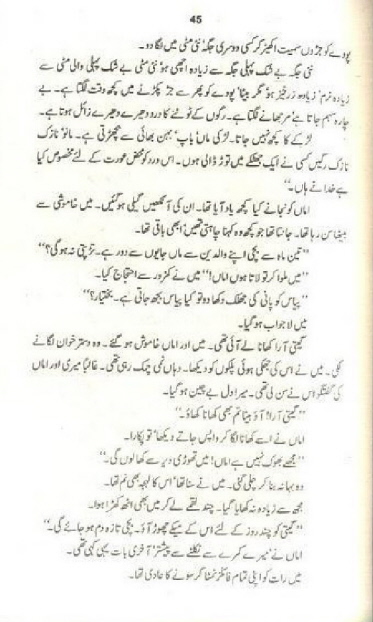 45
پودے کو جڑوں سمیت اکھیڑ کر کسی دوسری جگہ نئی مٹی میں لگا دو۔
نئی جگہ بے شک پہلی جگہ سے زیادہ اچھی ہو، نئی مٹی بے شک پہلی والی مٹی سے
زیادہ نرم، زیادہ زرخیز ہو، مگر بیٹا! پودے کو پھر سے جڑ پکڑنے میں کچھ وقت لگتا ہے۔ بے
چارہ سہم جاتا ہے، مرجھانے لگتا ہے۔ رگوں کے ٹوٹنے کا درد دھیرے دھیرے زائل ہوتا ہے۔
لڑکے کا کچھ نہیں جاتا۔ لڑکی ماں باپ، بہن بھائی سے بچھڑتی ہے۔ مانو نازک
نازک رگیں کسی نے ایک جھٹکے میں توڑ ڈالی ہوں۔ اس درد کو محض عورت کے لئے مخصوص کیا
ہے خدا نے ہاں۔"
اماں کو نجانے کیا کچھ یاد آیا تھا۔ ان کی آنکھیں گیلی ہو گئیں۔ میں خاموشی سے
بیٹھا سن رہا تھا۔ جانتا تھا جو کچھ وہ کہنا چاہتی تھیں، ابھی باقی تھا۔
"تین ماہ سے بچی اپنے والدین سے ماں جایوں سے دور ہے۔ تڑپتی نہ ہو گی؟"
"میں ملوا کر تو لاتا ہوں اماں!" میں نے کمزور سے احتجاج کیا۔
"پیاس کو پانی کی جھلک دکھا دو تو کیا پیاس بجھ جاتی ہے۔ بختیار؟"
میں لاجواب ہو گیا۔
گیتی آرا کھانا لے آئی تھی۔ میں اور اماں خاموش ہو گئے۔ وہ دسترخوان لگانے
لگی۔ میں نے اس کی جھکی ہوئی پلکوں کو دیکھا۔ وہاں نمی چمک رہی تھی۔ غالباً میری اور اماں
کی گفتگو اس نے سن لی تھی۔ میرا دل بے چین ہو گیا۔
"گیتی آرا! آؤ بیٹا تم بھی کھانا کھاؤ۔"
اماں نے اسے کھانا لگا کر واپس جاتے دیکھا تو پکارا۔
"مجھے بھوک نہیں ہے اماں! میں تھوڑی دیر سے کھا لوں گی۔"
وہ بہانہ بنا کر چلی گئی۔ میں نے سنا تھا، اس کا لہجہ بھی نم تھا۔
مجھ سے زیادہ نہ کھایا گیا۔ چند لقمے لے کر میں بھی اٹھ کھڑا ہوا۔
"گیتی کو چند روز کے لئے اس کے میکے چھوڑ آؤ۔ بچی تازہ دم ہو جائے گی۔"
اماں نے میرے کمرے سے نکلنے سے پیشتر آخری بات یہی کہی تھی۔
میں رات کو اپنی تمام فائلز نمٹا کر سونے کا عادی تھا۔